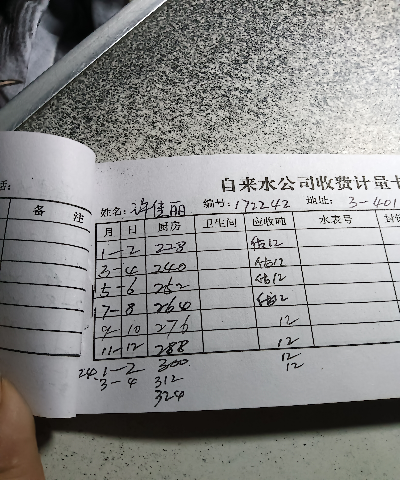 自来水公司收费计量卡
话:
姓名: 许佳丽 编号: 172242 地址: 3-401
备 注
月 日 厨房 卫生间 应收吨 水表号
1-2 228 估12
3-4 240 估12
5-6 252 估12
7-8 264 估12
9-10 276 12
11-12 288 12
24.1-2 300 12
3-4 312 12
324